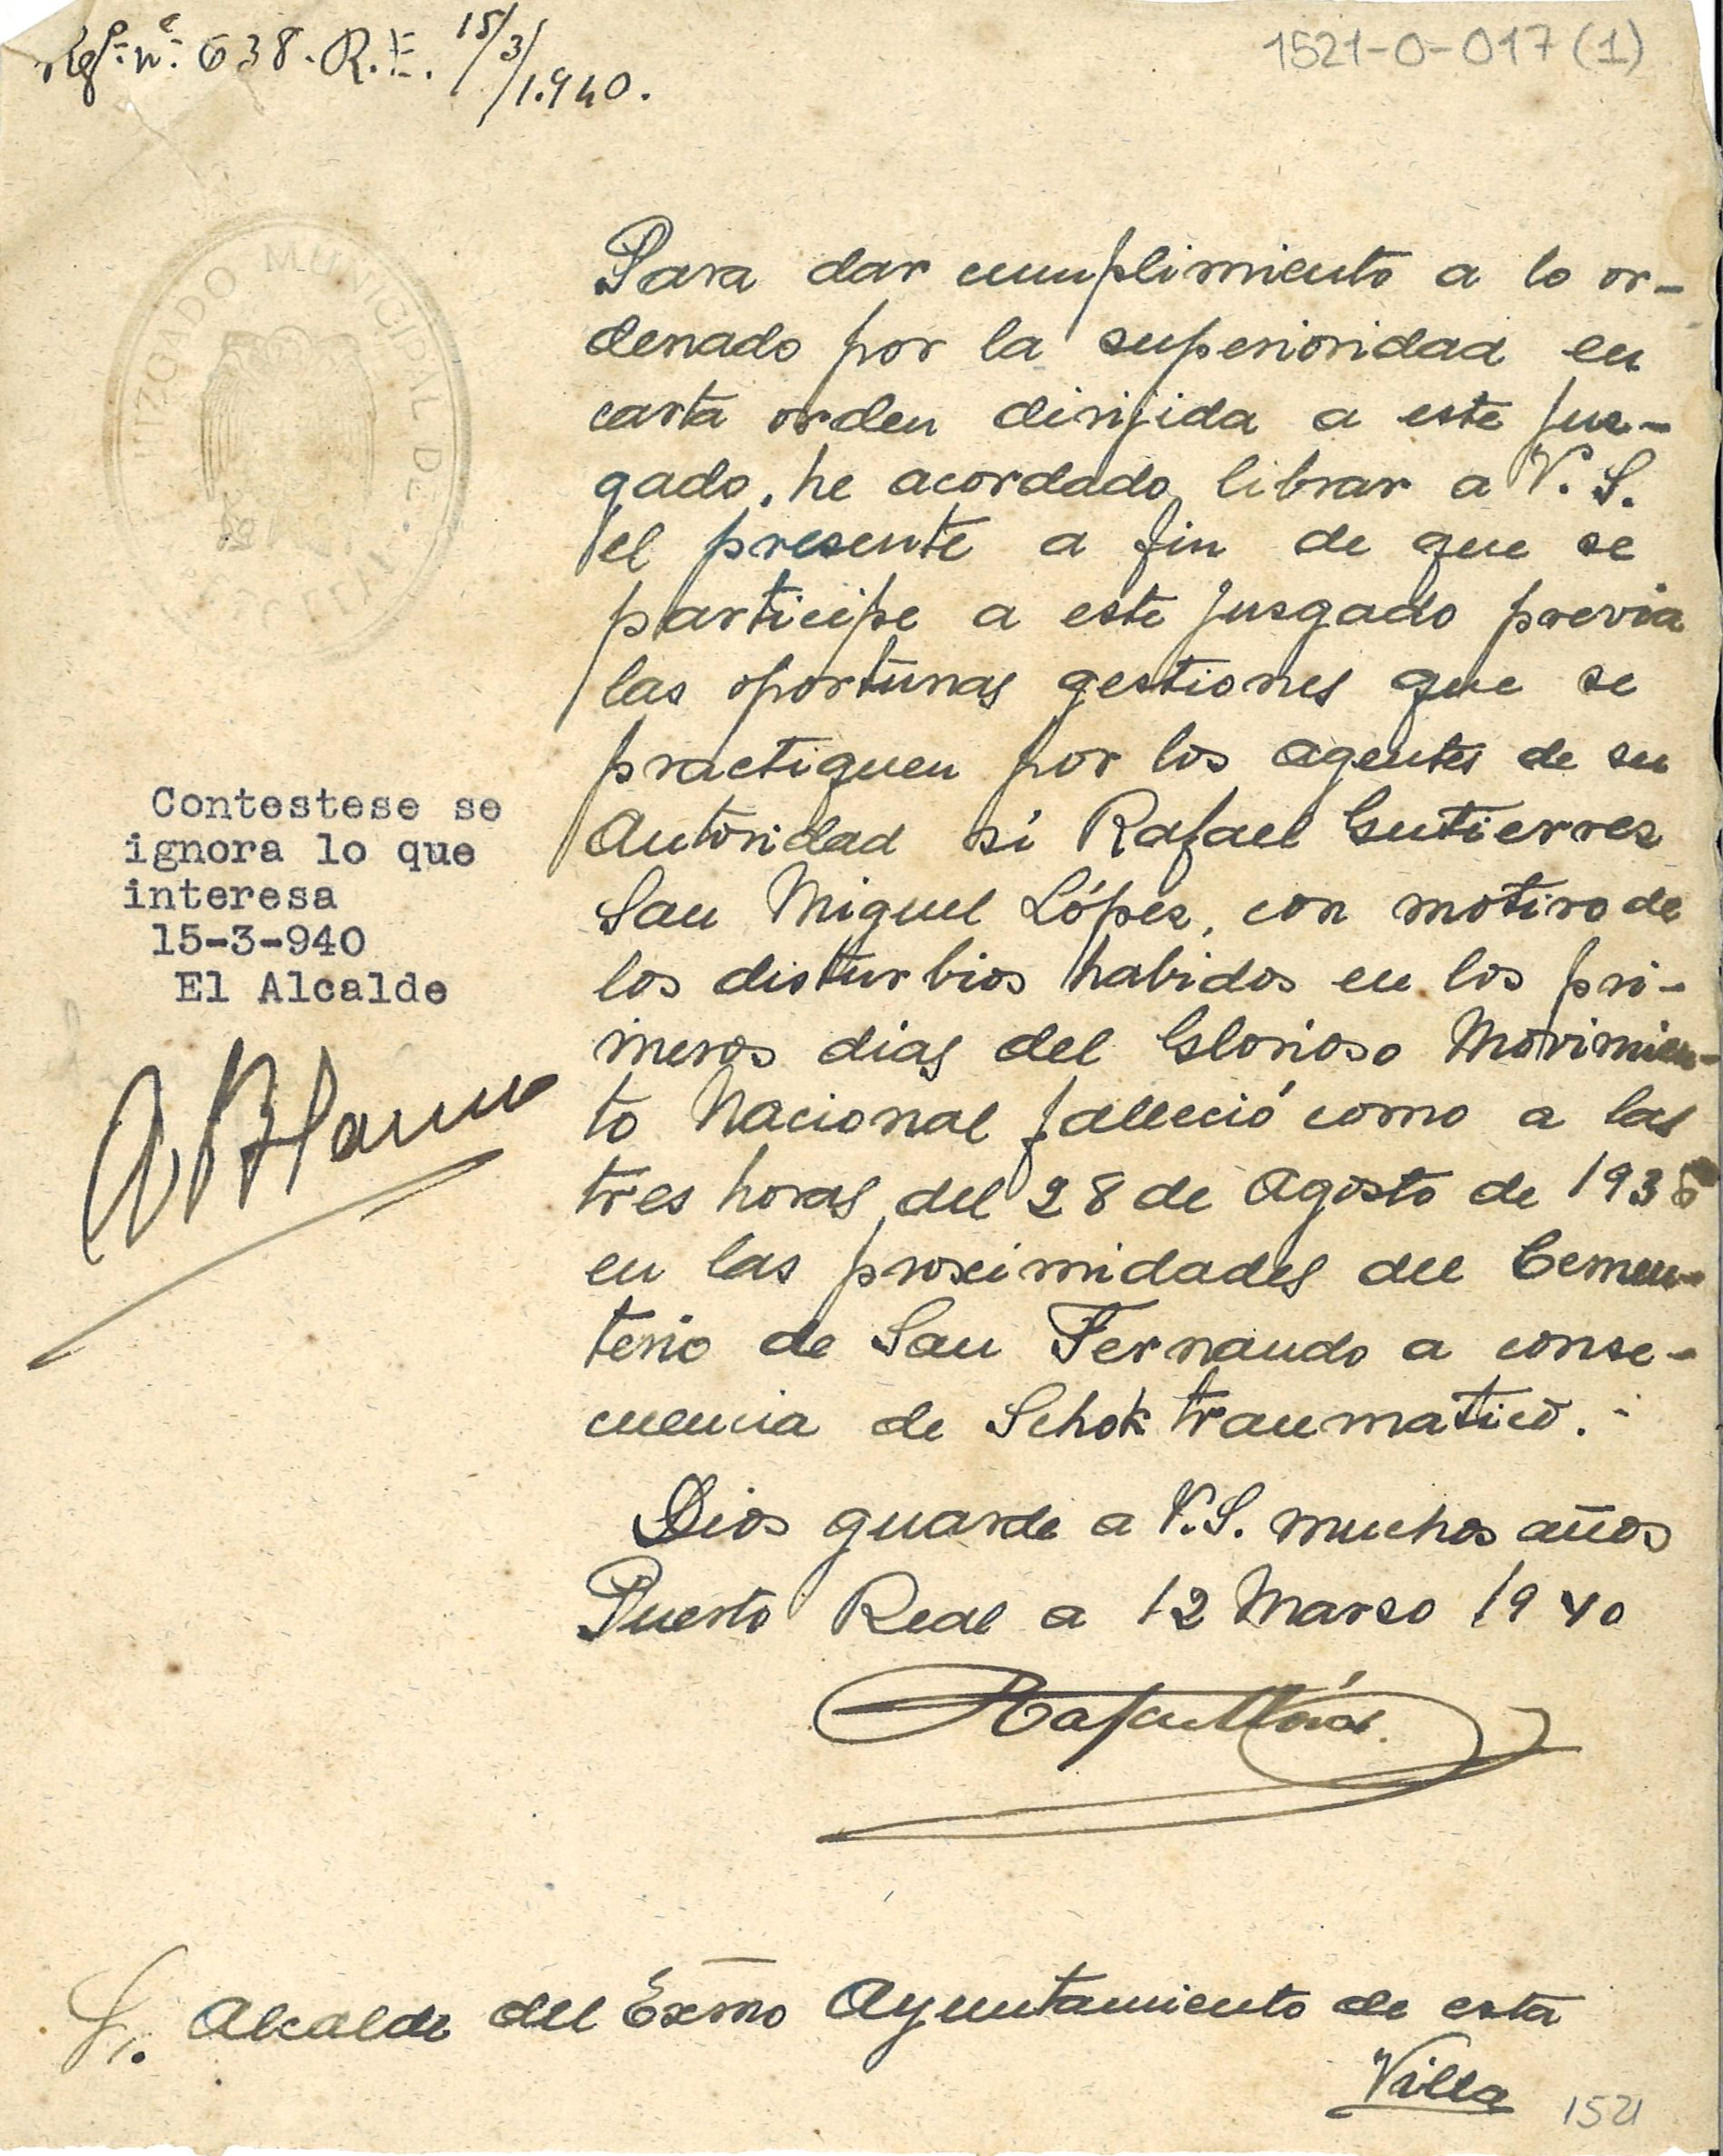 Regº nº 638. R.E. 15/3/1.940.
1521-0-017 (1)
JUZGADO MUNICIPAL DE
Para dar cumplimiento a lo or-
denado por la superioridad en
carta orden dirijida a este Juz-
gado, he acordado librar a V. S.
el presente a fin de que se
participe a este Juzgado previa
las oportunas gestiones que se
practiquen por los agentes de su
Autoridad si Rafael Gutierrez
San Miguel López, con motivo de
los disturbios habidos en los pri-
meros dias del Glorioso Movimien-
to Nacional falleció como a las
tres horas del 28 de Agosto de 1936
en las proximidades del Cemen-
terio de San Fernando a conse-
cuencia de Schok traumatico.-
Dios guarde a V.S. muchos años
Puerto Real a 12 Marzo 1940
Contestese se
ignora lo que
interesa
15-3-940
El Alcalde
Sr. Alcalde del Exmo Ayuntamiento de esta
Villa
1521